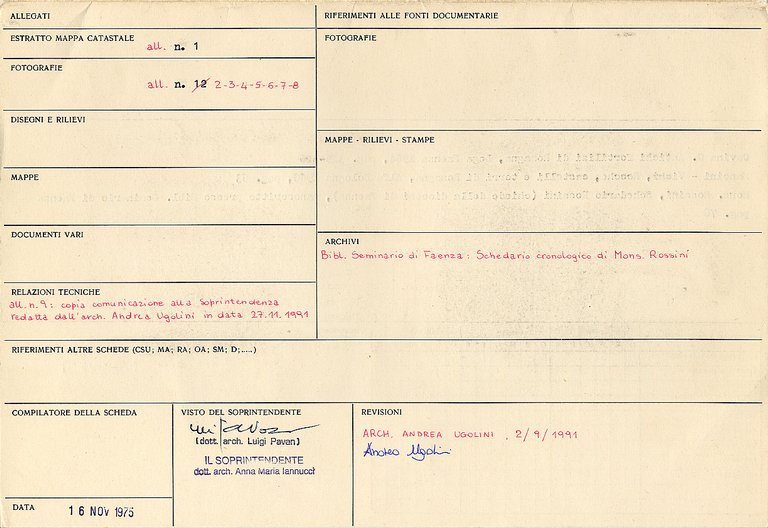 ALLEGATI
ESTRATTO MAPPA CATASTALE
all. n. 1
FOTOGRAFIE
all. n. 12 2-3-4-5-6-7-8
DISEGNI E RILIEVI
MAPPE
DOCUMENTI VARI
RELAZIONI TECNICHE
all. n. 9: copia comunicazione alla Soprintendenza
redatta dall'arch. Andrea Ugolini in data 27.11.1991
RIFERIMENTI ALLE FONTI DOCUMENTARIE
FOTOGRAFIE
MAPPE - RILIEVI - STAMPE
ARCHIVI
Bibl. Seminario di Faenza: Schedario cronologico di Mons. Rossini
RIFERIMENTI ALTRE SCHEDE (CSU; MA; RA; OA; SM; D;.....)
COMPILATORE DELLA SCHEDA
DATA 16 NOV 1975
VISTO DEL SOPRINTENDENTE
(dott. arch. Luigi Pavan)
IL SOPRINTENDENTE
dott. arch. Anna Maria Iannucci
REVISIONI
ARCH. ANDREA UGOLINI . 2/9/1991
Andrea Ugolini